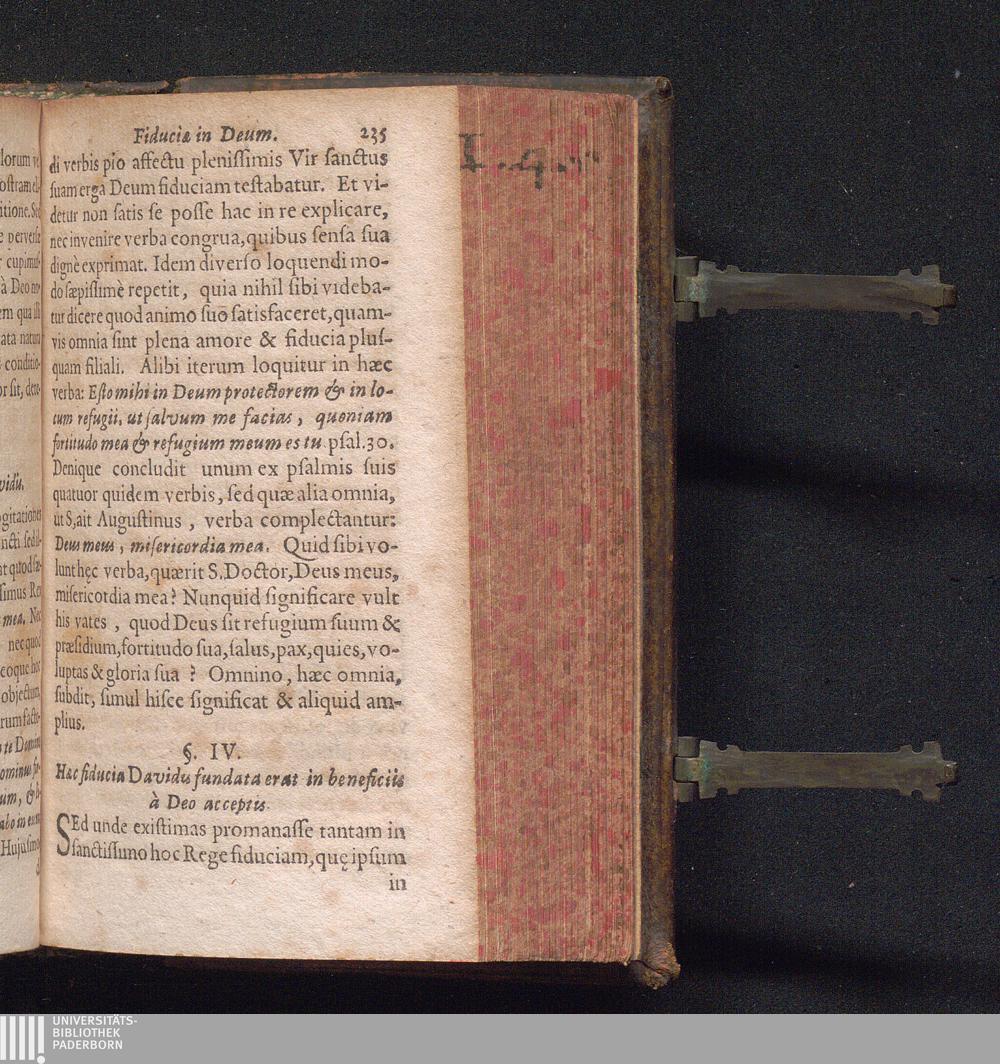 Fiduciæ in Deum. 235
di verbis pio affectu pleniſſimis Vir ſanctus
ſuam erga Deum fiduciam teſtabatur. Et vi-
detur non ſatis ſe poſſe hac in re explicare,
nec invenire verba congrua, quibus ſenſa ſua
dignè exprimat. Idem diverſo loquendi mo-
do ſæpiſſimè repetit, quia nihil ſibi videba-
tur dicere quod animo ſuo ſatisfaceret, quam-
vis omnia ſint plena amore & fiducia pluſ-
quam filiali. Alibi iterum loquitur in hæc
verba: Eſto mihi in Deum protectorem & in lo-
cum refugii, ut ſalvum me facias, quoniam
fortitudo mea & refugium meum es tu pſal. 30.
Denique concludit unum ex pſalmis ſuis
quatuor quidem verbis, ſed quæ alia omnia,
ut S, ait Auguſtinus, verba complectantur:
Deus meus, miſericordia mea. Quid ſibi vo-
lunt hęc verba, quærit S. Doctor, Deus meus,
miſericordia mea? Nunquid ſignificare vult
his vates, quod Deus ſit refugium ſuum &
præſidium, fortitudo ſua, ſalus, pax, quies, vo-
luptas & gloria ſua? Omnino, hæc omnia,
ſubdit, ſimul hiſce ſignificat & aliquid am-
plius.
§. IV.
Hæc fiducia Davidis fundata erat in beneficiis
à Deo acceptis.
SEd unde exiſtimas promanaſſe tantam in
ſanctiſſimo hoc Rege fiduciam, quę ipſum
in
UNIVERSITÄTS-
BIBLIOTHEK
PADERBORN